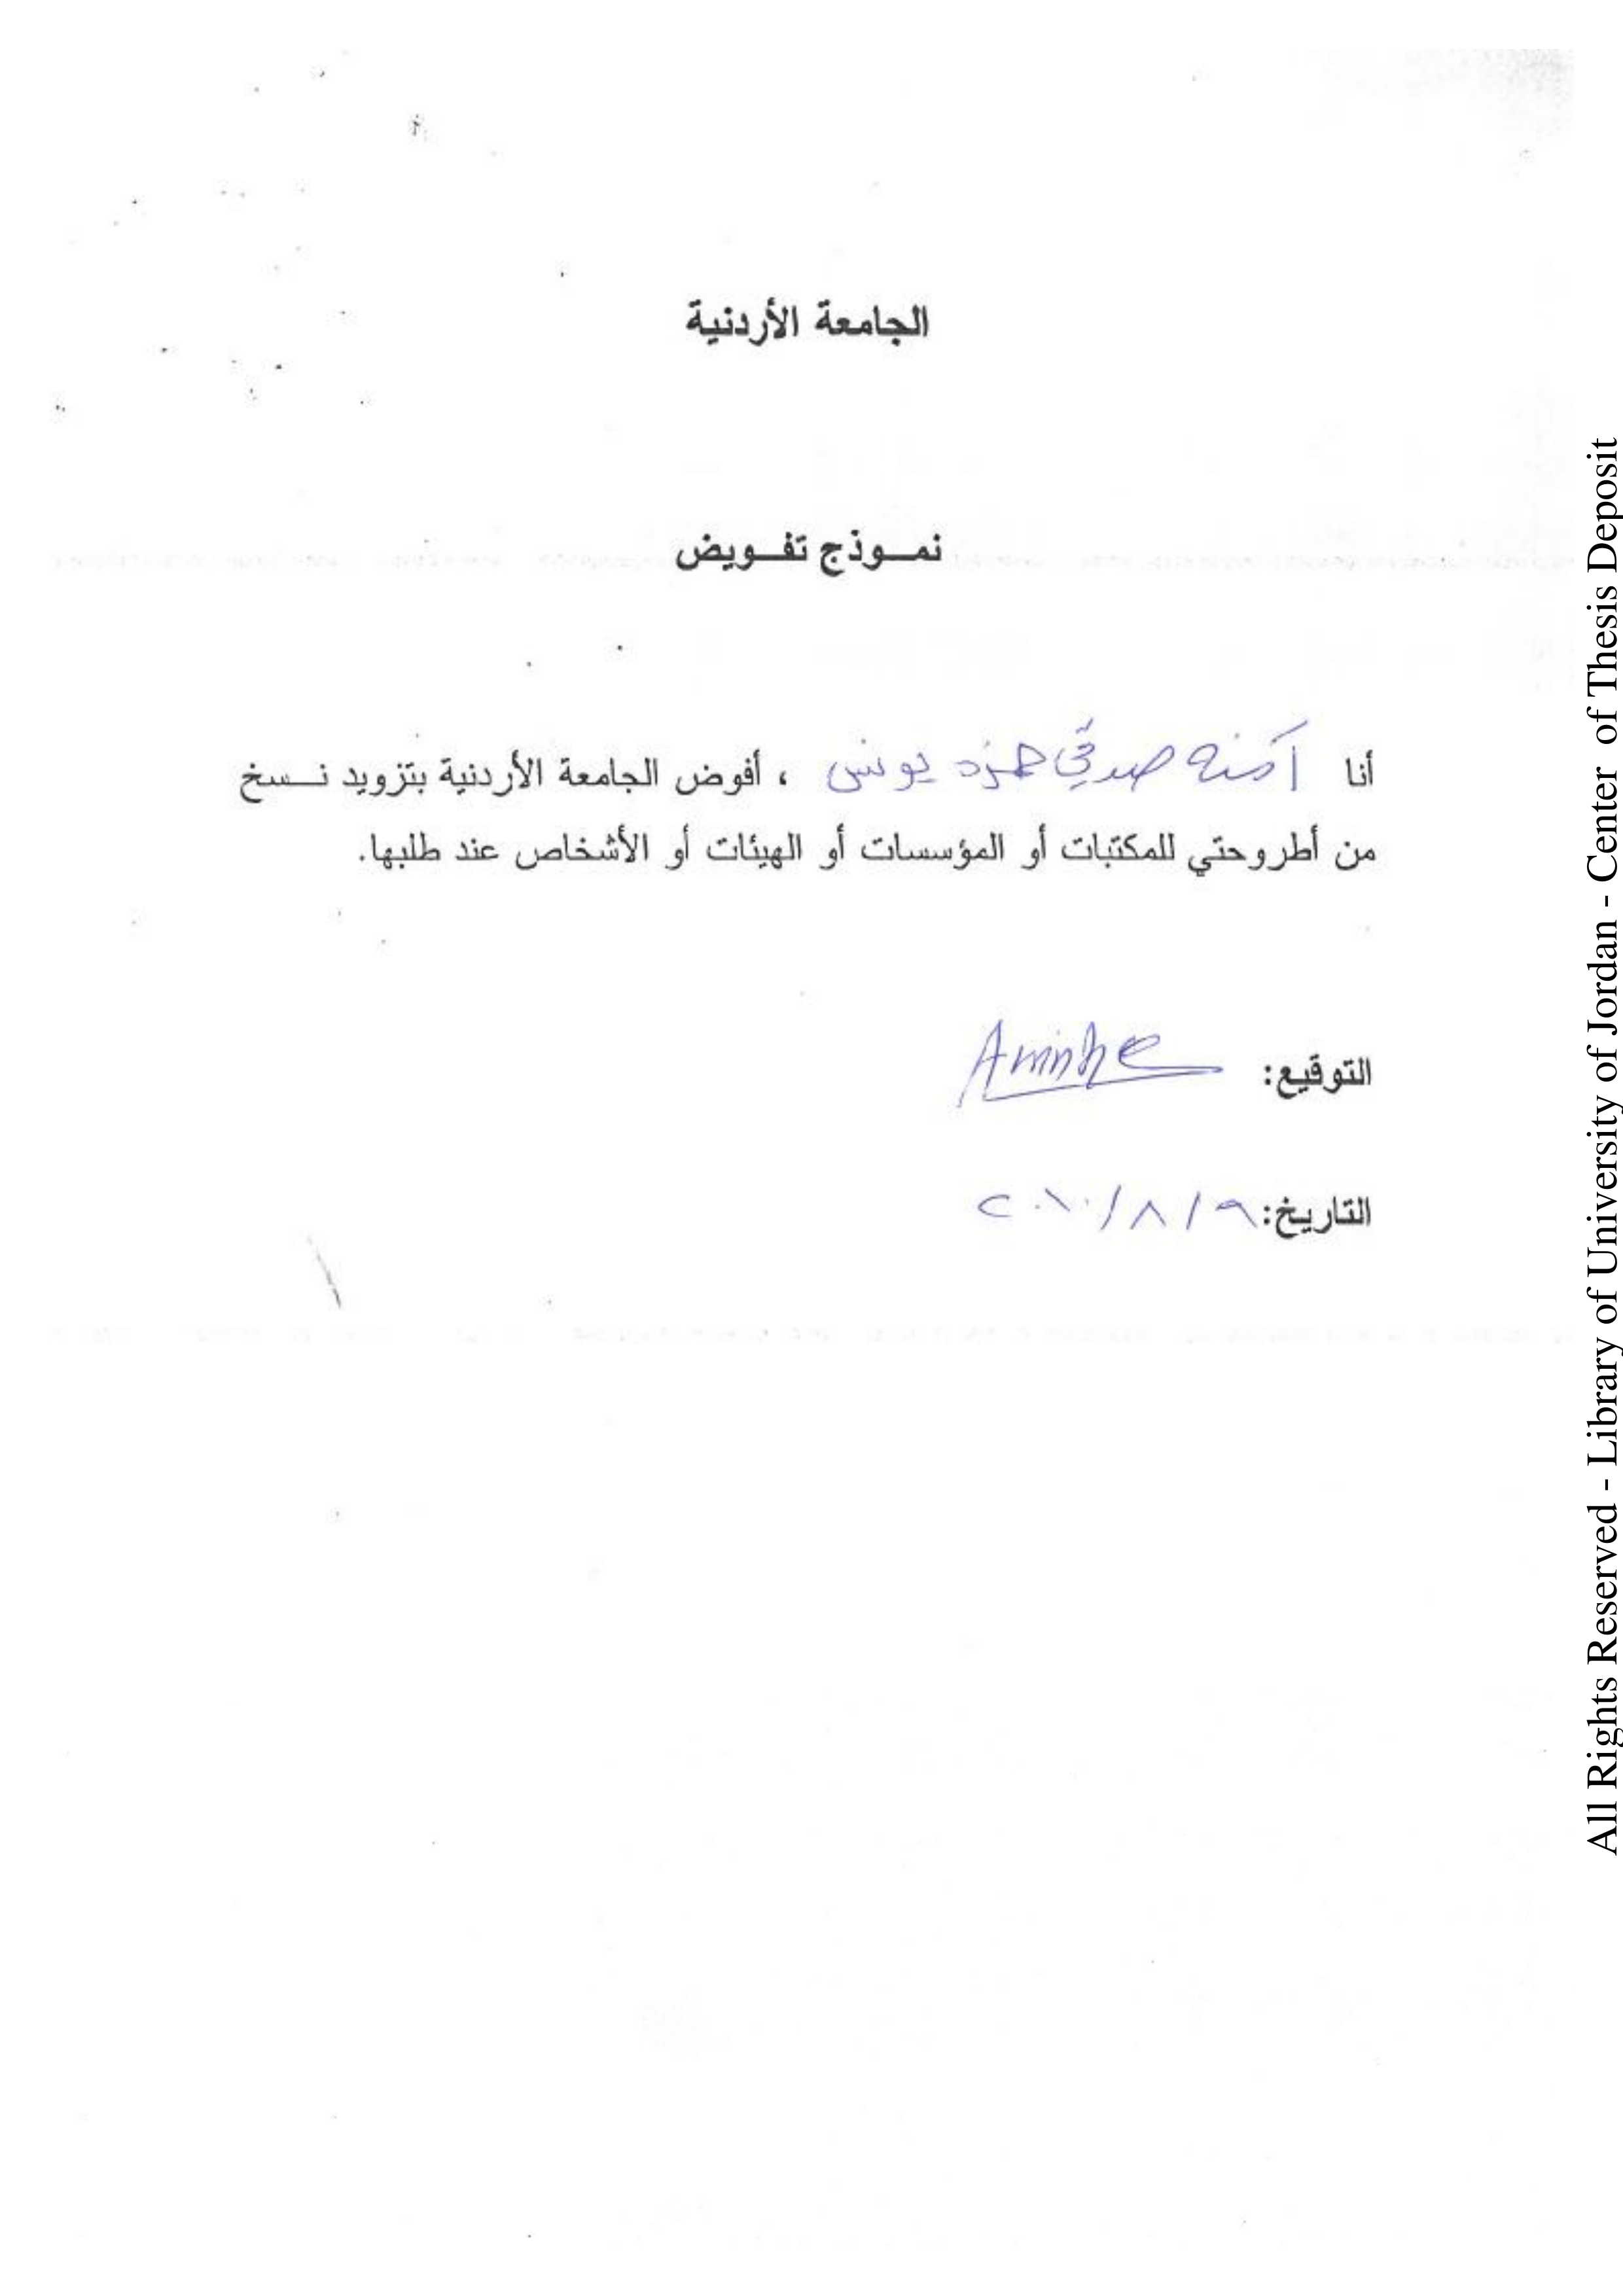 الجامعة الأردنية
نمـوذج تفـويض
أنا آمنه صدقي حمزه يونس ، أفوض الجامعة الأردنية بتزويد نـسخ
من أطروحتي للمكتبات أو المؤسسات أو الهيئات أو الأشخاص عند طلبها.
التوقيع:
التاريخ: ٩/٨/٢٠١٠
All Rights Reserved - Library of University of Jordan - Center of Thesis Deposit